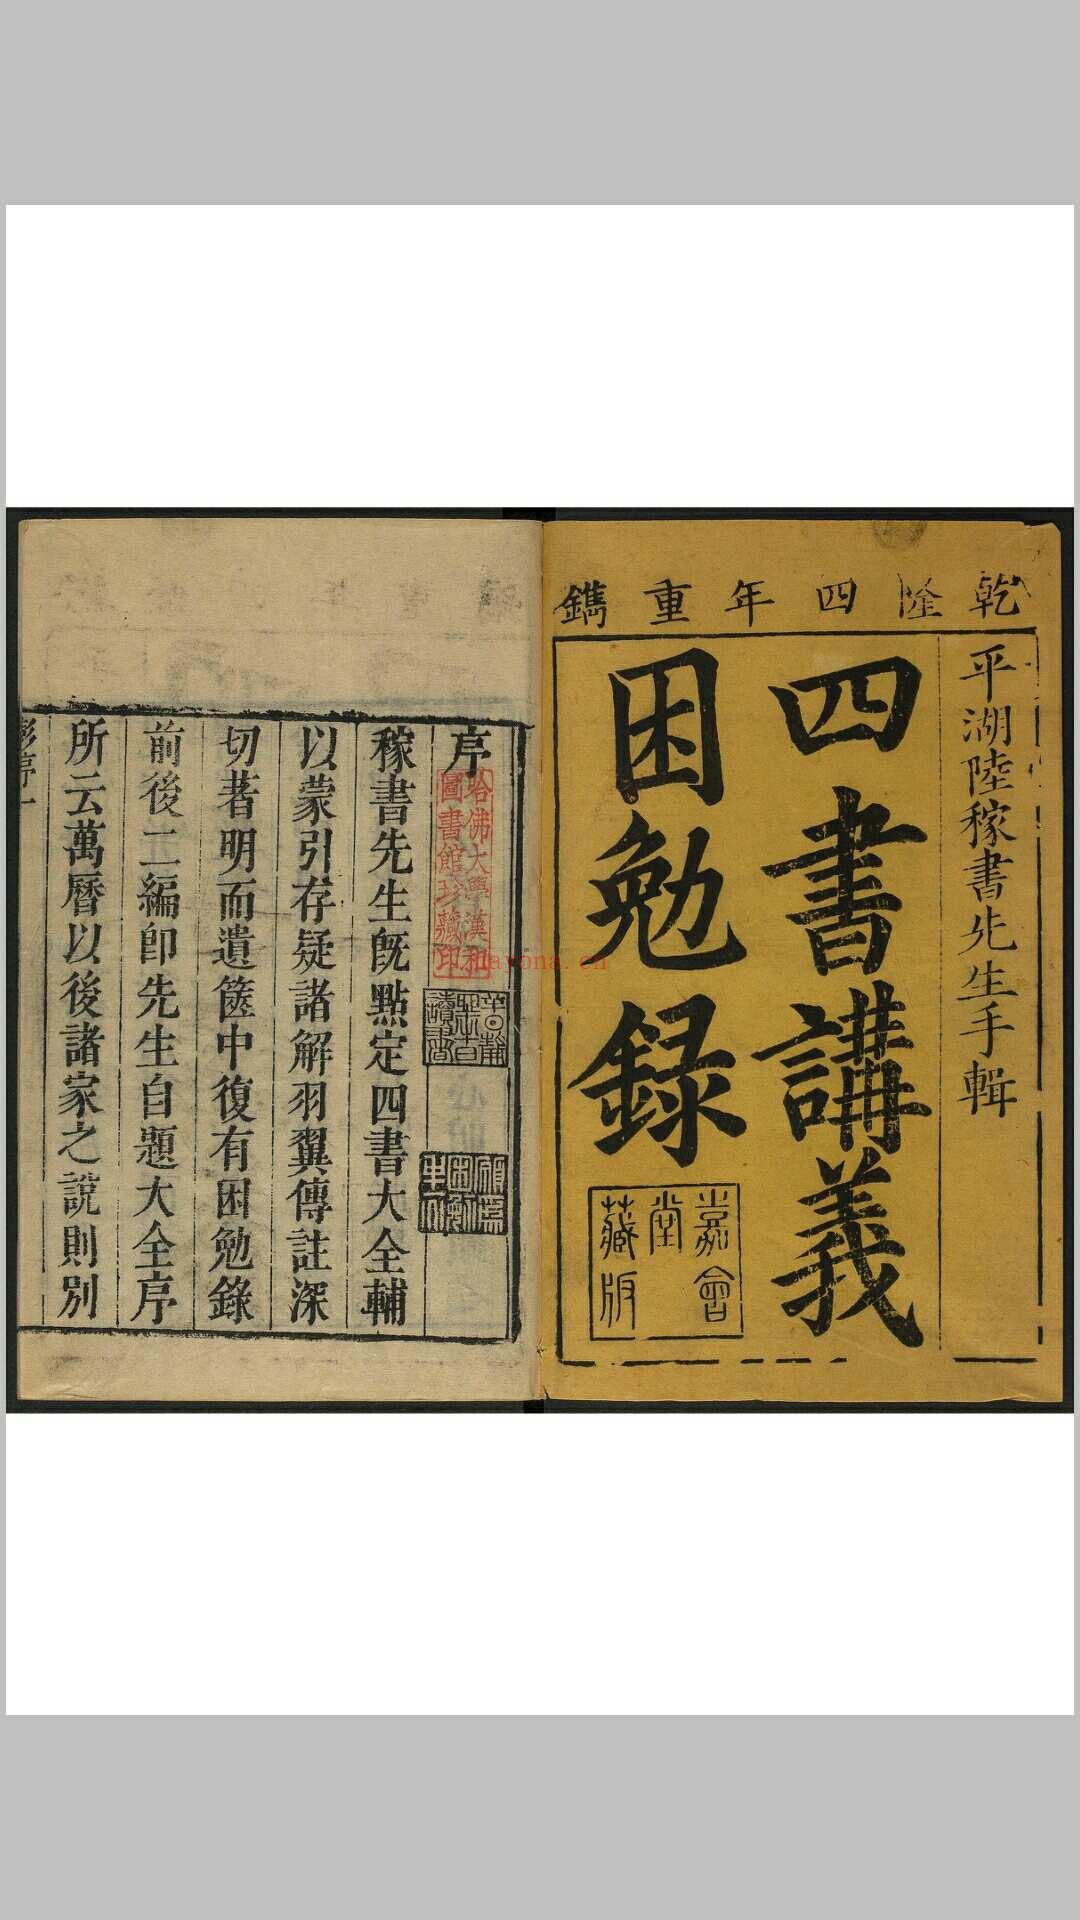 乾隆四年重鐫
平湖陸稼書先生手輯
四書講義
困勉錄
嘉會
堂
藏版
序
哈佛大學漢和
圖書館珍藏印
稼書先生旣點定四書大全輔
以蒙引存疑諸解羽翼傳註深
切著明而遺篋中復有困勉錄
前後二編卽先生自題大全序
所云萬曆以後諸家之說則別
彭序一